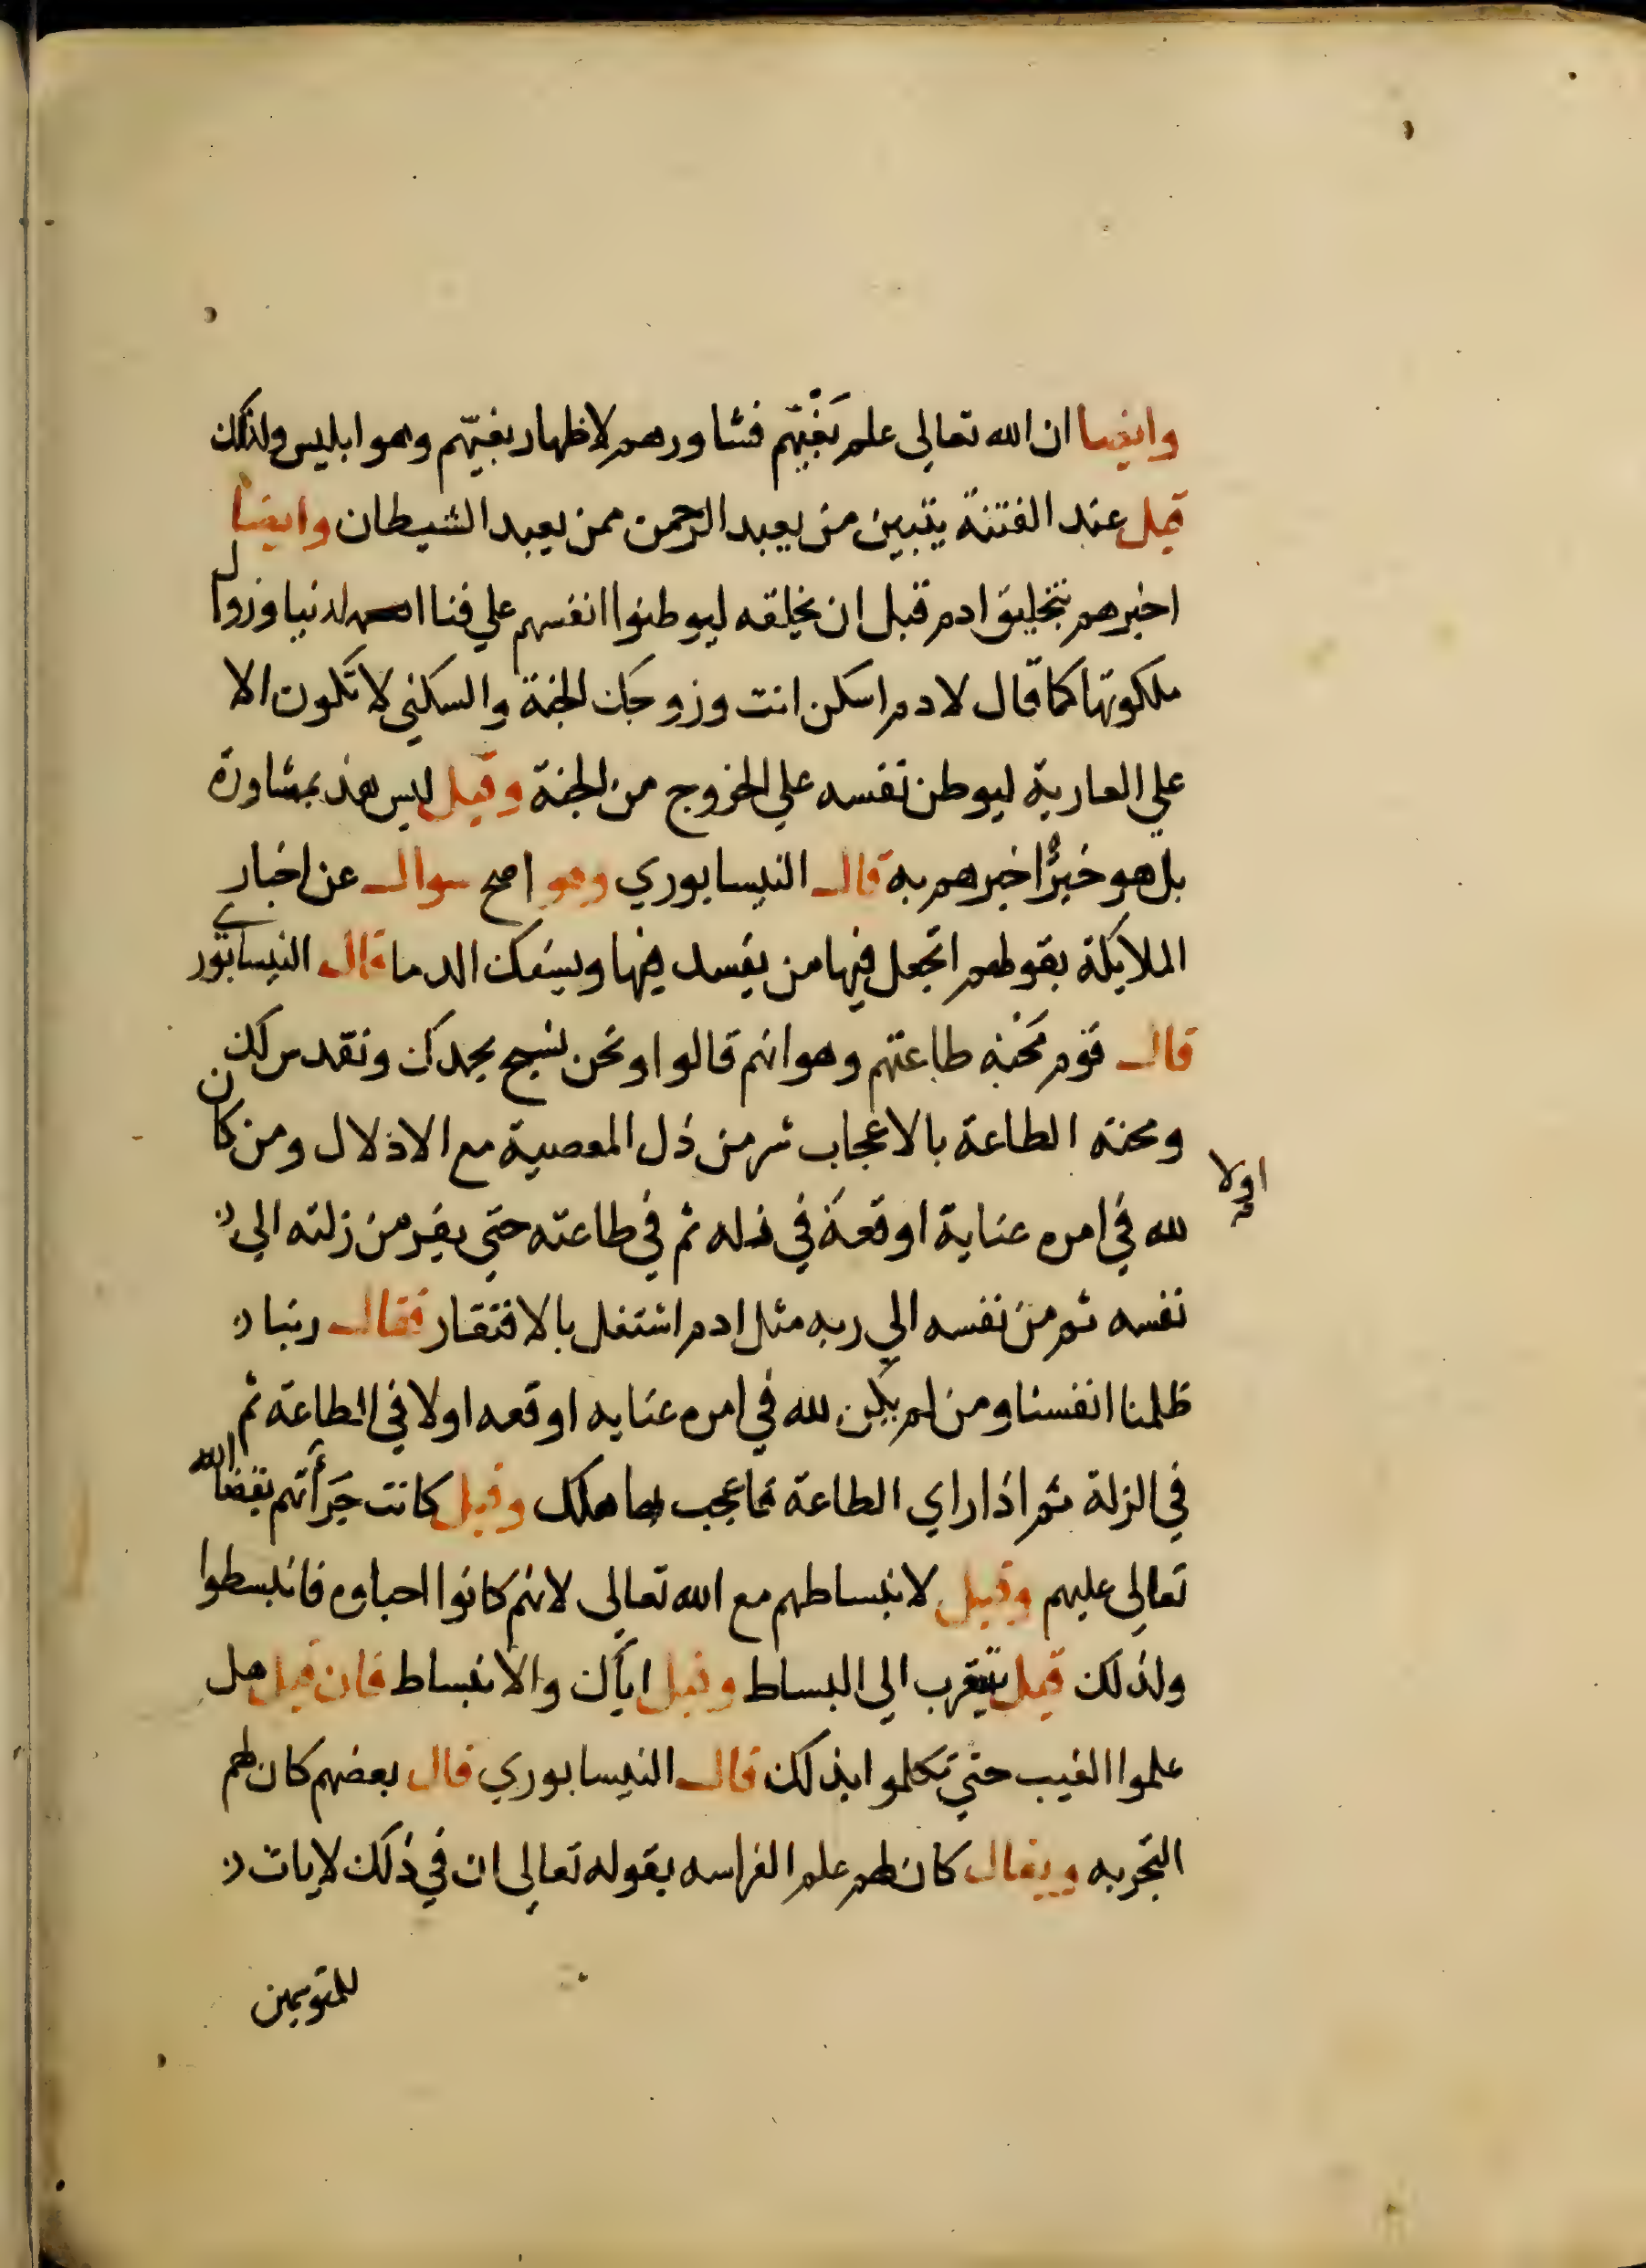 وايضا ان الله تعالى علم بغيهم فشاورهم لاظهار بغيّهم وهو ابليس ولذلك
قيل عند الفتنة يتبين من يعبد الرحمن ممن يعبد الشيطان وايضا
اخبرهم بتخليق ادم قبل ان يخلقه ليوطنوا انفسهم علي فنا الدنيا وزوال
ملكوتها كما قال لادم اسكن انت وزوجك الجنة والسكني لا تكون الا
علي العارية ليوطن نفسه علي الخروج من الجنة وقيل ليس هذ بمشاورة
بل هو خبرٌ اخبرهم به قال النيسابوري وهو اصح سوال عن اخبار
الملايكة بقولهم اتجعل فيها من يفسد فيها ويسفك الدما قال النيسابوري
قال قوم محنة طاعتهم وهو انهم قالوا ونحن نسبح بحمدك ونقدس لك
ومحنة الطاعة بالاعجاب شر من ذل المعصية مع الاذلال ومن كان
اولا
لله في امره عناية اوقعه في زله ثم في طاعته حتي يفر من زلته الي
نفسه ثم من نفسه الي ربه مثل ادم اشتغل بالافتقار فقال ربنا
ظلمنا انفسنا ومن لم يكن لله في امره عنايه اوقعه اولا في الطاعة ثم
في الزلة ثم اذا راي الطاعة فاعجب بها هلك وقيل كانت جَرأتهم بقضا الله
تعالى عليهم وقيل لانبساطهم مع الله تعالى لانهم كانوا احباوه فانبسطوا
ولذلك قيل تقرب الى البساط وقيل اياك والانبساط فان قيل هل
علموا الغيب حتي تكلموا بذلك قال النيسابوري قال بعضهم كان لهم
التجربه ويقال كان لهم علم الفراسه بقوله تعالى ان في ذلك لايات
للمتوسمين